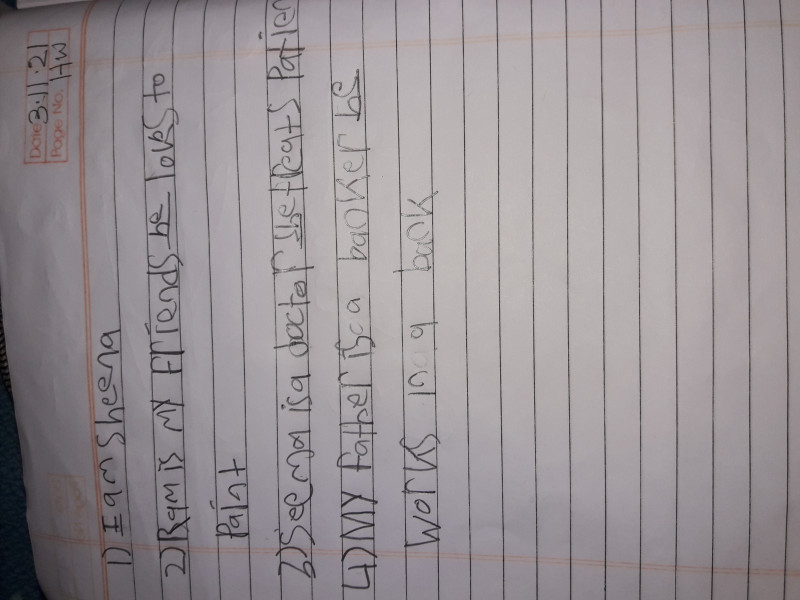 Date 3.11.21
Page No. HW
1) I am sheena
2) Ram is my Friends he loves to
Paint
3) Seema is a doctor she treats Patien
4) My Father is a banker he
works in a bank